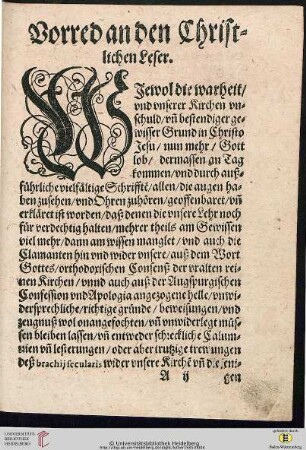 Vorred an den Christ-
lichen Leser.
WIewol die warheit/
vnd vnserer Kirchen vn-
schuld/ vn̄ bestendiger ge-
wisser Grund in Christo
Jesu/ nun mehr/ Gott
lob/ dermassen an Tag
kommen/ vnd durch auß-
führliche vielfältige Schrifftē/ allen/ die augen ha-
ben zusehen/ vnd Ohren zuhören/ geoffenbaret/ vn̄
erkläret ist worden/ daß denen die vnsere Lehr noch
für verdechtig halten/ mehrer theils am Gewissen
viel mehr/ dann am wissen manglet/ vnd auch die
Clamanten hin vnd wider vnsere/ auß dem Wort
Gottes/ orthodorischen Consenß der vralten rei-
nen Kirchen/ vnnd auch auß der Augspurgischen
Confession vnd Apologia angezogene helle/ vnwi-
dersprechliche/ richtige gründe/ beweisungen/ vnd
zeugnuß wol onangefochten/ vn̄ vnwiderlegt müs-
sen bleiben lassen/ vn̄ entweder schreckliche Calum-
nien vn̄ lesterungen/ oder aber trutzige trewungen
deß brachij secularis wider vnsere Kirchē vn̄ die jeni-
A ij
gen
UNIVERSITÄTS-
BIBLIOTHEK
HEIDELBERG
© Universitätsbibliothek Heidelberg